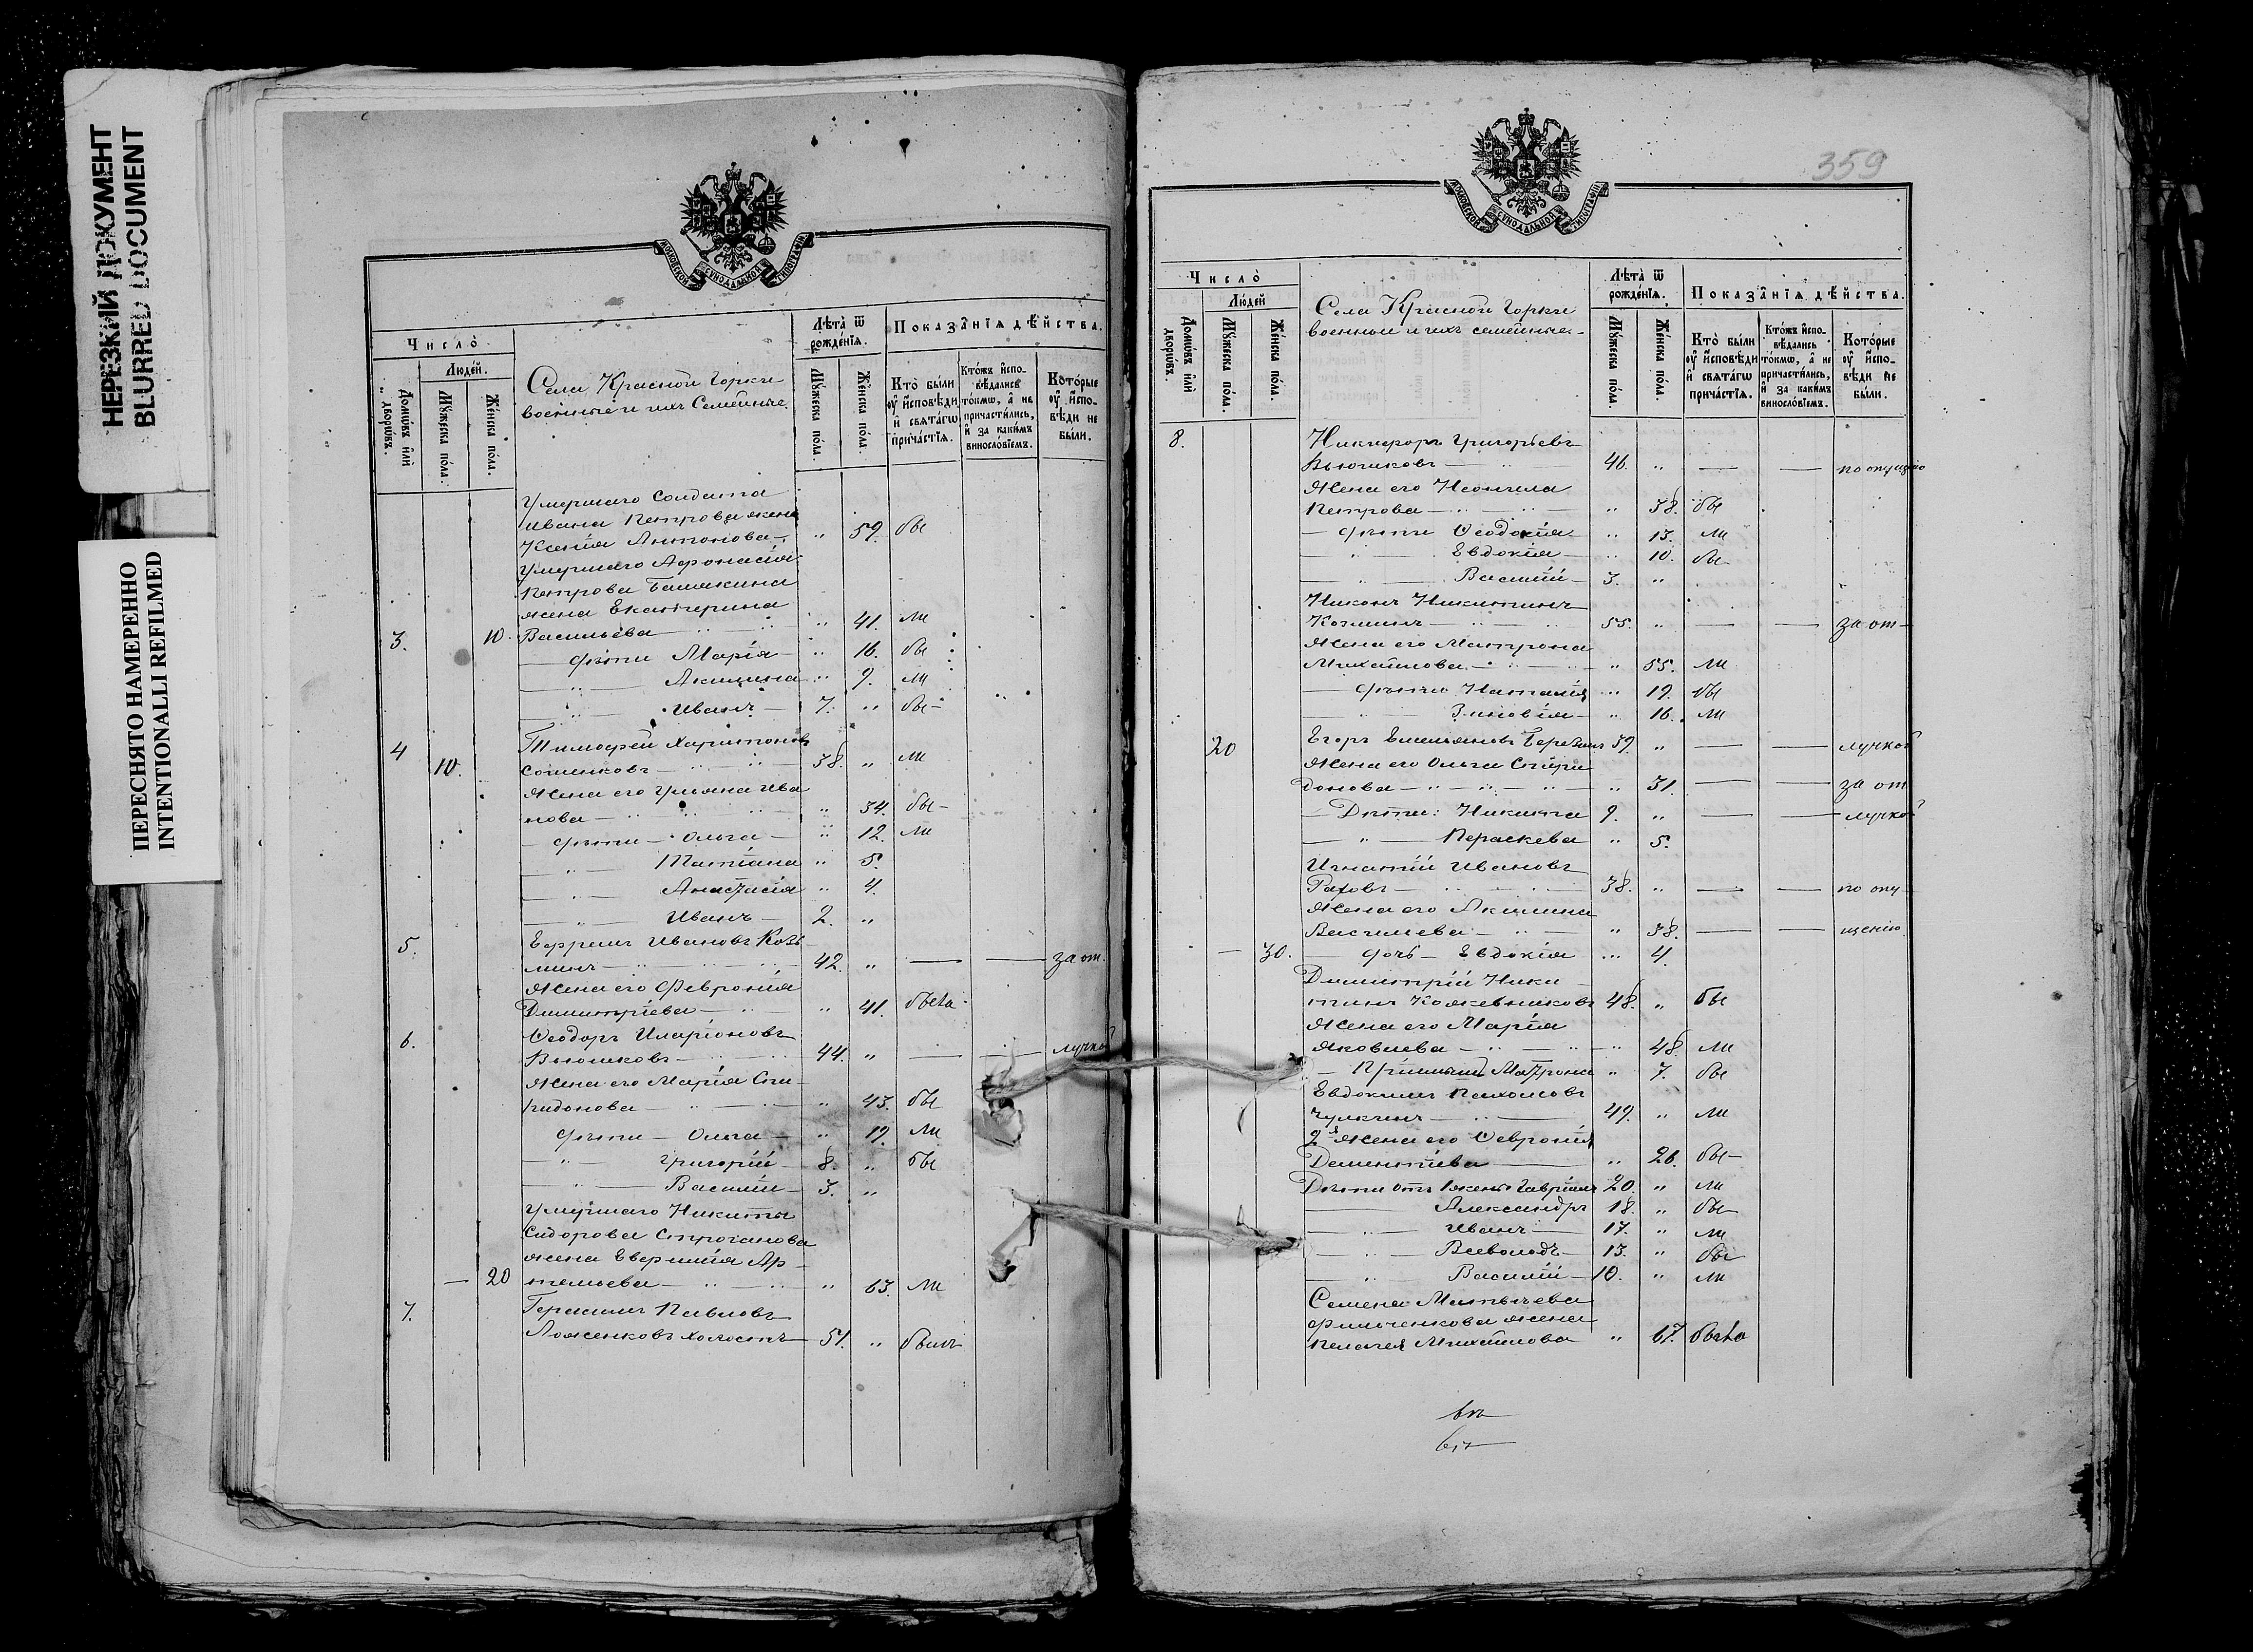 НЕРЕЗКИЙ ДОКУМЕНТ
BLURRED DOCUMENT
ПЕРЕСНЯТО НАМЕРЕННО
INTENTIONALLI REFILMED
МОСКОВСКОЙ СѴНОДАЛЬНОЙ ТИПОГРАФІИ
Число̀
Людей.
Домѡвъ и҆лѝ дворѡвъ.
Мꙋжеска пола.
Женска пола.
Села Красной Горки
военные и ихъ Семейные.
Лѣта̀ ѿ рожденїѧ.
Мꙋжеска пола.
Женска пола.
Показанїѧ дѣйства.
Кто̀ были ᲂу҆ и҆сповѣди и҆ свѧтагѡ причастїѧ.
Кто́жъ и҆сповѣдалисѧ то́кмѡ, а҆ не причастились, и҆ за какимъ винословїемъ.
Которые ᲂу҆ и҆сповѣди не были.
Умершаго Солдата
Ивана Петрова жена
Ксенія Антонова — " 59. бы
Умершаго Афонасія
Петрова Башкина
жена Екатерина
3. 10. Васильева — " 41. ли
дѣти Марія — " 16. бы
— " — Акилина " 9. ли
— " — Иванъ — 7. " бы-
4 Тимофей Харитоновъ
10. — 38. " ли
Жена его Ульяна Ива
нова — " 34. бы-
— дѣти — Ольга — " 12. ли
— " — Татіана " 5.
— " — Анастасія " 4.
— " — Иванъ — 2. "
5. Ефремъ Ивановъ Козь
минъ — 42. " — — за от.
Жена его Феврônія
Димитріева — " 41. была
6. Ѳеодоръ Иларіоновъ
Вьюшковъ — 44. " — — лучкой
Жена его Марія Спи-
ридонова — " 43. бы
дѣти — Ольга — " 19. ли
— " — Григорій — 8. " бы
— " — Василій — 3. "
Умершаго Никиты
Сидорова Строганова
жена Евфимія Ар-
— 20 темьева — " 63. ли
7. Герасимъ Павловъ
Ложенковъ холостъ — 51. " былъ
359
МОСКОВСКОЙ СѴНОДАЛЬНОЙ ТИПОГРАФІИ
Число̀
Людей
Домѡвъ и҆лѝ дворѡвъ.
Мꙋжеска пола.
Женска пола.
Села Красной Горки
военные и ихъ семейные.
Лѣта̀ ѿ рожденїѧ.
Мꙋжеска пола.
Женска пола.
Показанїѧ дѣйства.
Кто̀ были ᲂу҆ и҆сповѣди и҆ свѧтагѡ причастїѧ.
Кто́жъ и҆сповѣдались то́кмѡ, а҆ не причастились, и҆ за какимъ винословїемъ.
Которые ᲂу҆ и҆сповѣди не были.
8. Никифоръ Григорьевъ
Вьюшковъ — 46. " — — по опущѣнію
Жена его Неонила
Петрова — " 38. бы
— дѣти Ѳеодосія — " 13. ли
— " — Евдокія — " 10. бы-
— " — Василій — 3. "
Никонъ Никитинъ
— 55. " — — за от-
Жена его Матрона
Михайлова — " 55. ли
— дѣти Наталія " 19. бы
— " — Зиновія — " 16. ли
20 Егоръ Емельяновъ 39. " — — лучкой
Жена его Ольга Спири
донова — " 31. — — за от
— Дѣти: Никита 9. " — — лучкой
— " — Параскева " 5.
Игнатій Ивановъ
— 38. " — — по опу
Жена его Акилина
Васильева — " 38. — — щенію
— 30. — дочь — Евдокія " 4.
Димитрій Ники
тинъ Кожевниковъ 48. " бы
Жена его Марія
Яковлева — " 48. ли
— Матрона " 7. бы
Евдокимъ Пахомовъ
— 49. " ли
2я Жена его Ѳевронія
Дементіева — " 26. бы-
Дѣти отъ 1 жены Гавріилъ 20. " ли
— Александръ 18. " бы
— " — Иванъ — 17. " ли
— " — Всеволодъ — 13. " бы
— " — Василій — 10. " ли
Семена Матвѣева
жена
Пелагея Михайлова " 67. была